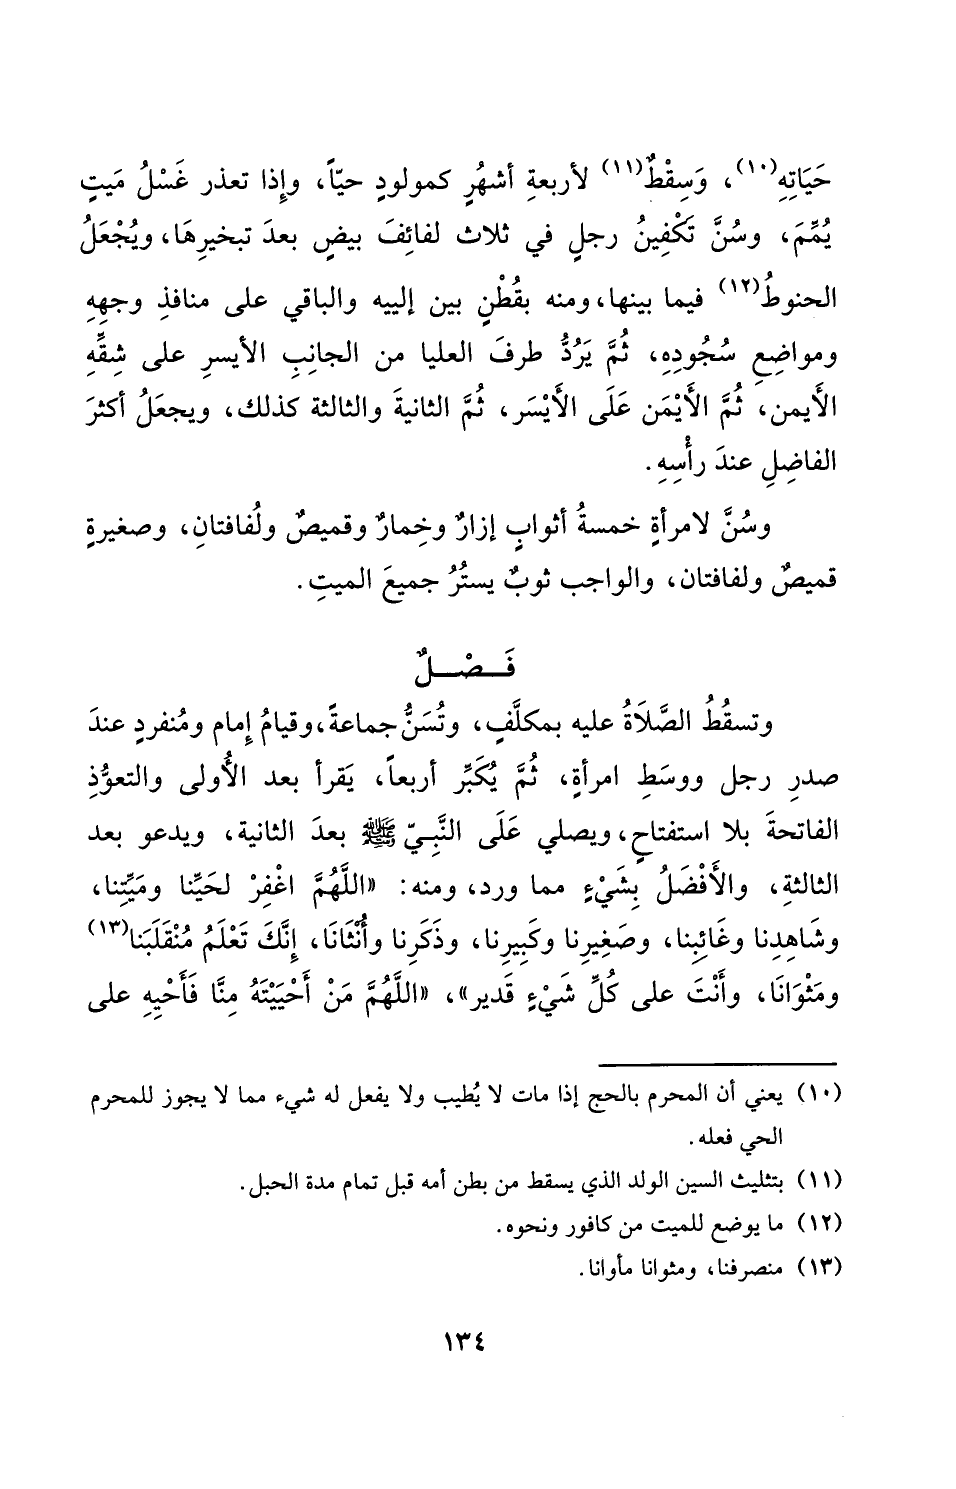 حَيَاتِهِ(١٠)، وَسِقْطٌ(١١) لأربعةِ أشهُرٍ كمولودٍ حيّاً، وإِذا تعذر غَسْلُ مَيتٍ
يُمِّمَ، وسُنَّ تَكْفِينُ رجلٍ في ثلاث لفائِفَ بيضٍ بعدَ تبخيرِهَا، ويُجْعَلُ
الحنوطُ(١٢) فيما بينها، ومنه بقُطْنٍ بين إلييه والباقي على منافذِ وجهِهِ
ومواضِعِ سُجُودِهِ، ثُمَّ يَرُدُّ طرفَ العليا من الجانِبِ الأيسرِ على شِقِّهِ
الأَيمن، ثُمَّ الأَيْمَن عَلَى الأَيْسَر، ثُمَّ الثانيةَ والثالثة كذلك، ويجعَلُ أكثرَ
الفاضِلِ عندَ رأْسِهِ.
وسُنَّ لامرأةٍ خمسةُ أثوابٍ إزارٌ وخِمارٌ وقميصٌ ولُفافتانِ، وصغيرةٍ
قميصٌ ولفافتان، والواجب ثوبٌ يستُرُ جميعَ الميتِ.
فَـصْـلٌ
وتسقُطُ الصَّلَاةُ عليه بمكلَّفٍ، وتُسَنُّ جماعةً، وقيامُ إِمام ومُنفردٍ عندَ
صدرِ رجل ووسَطِ امرأةٍ، ثُمَّ يُكَبِّر أربعاً، يَقرأ بعد الأُولى والتعوُّذِ
الفاتحةَ بلا استفتاحٍ، ويصلي عَلَى النَّبِيّ ﷺ بعدَ الثانية، ويدعو بعد
الثالثةِ، والأَفْضَلُ بِشَيْءٍ مما ورد، ومنه: «اللَّهُمَّ اغْفِرْ لحَيِّنا ومَيِّتِنا،
وشَاهِدِنا وغَائِبِنا، وصَغِيرِنا وكَبِيرِنا، وذَكَرِنا وأُنْثَانَا، إِنَّكَ تَعْلَمُ مُنْقَلَبَنا(١٣)
ومَثْوَانَا، وأَنْتَ على كُلِّ شَيْءٍ قَدير»، «اللَّهُمَّ مَنْ أَحْيَيْتَهُ مِنَّا فَأَحْيِهِ على
(١٠) يعني أن المحرم بالحج إذا مات لا يُطيب ولا يفعل له شيء مما لا يجوز للمحرم
الحي فعله.
(١١) بتثليث السين الولد الذي يسقط من بطن أمه قبل تمام مدة الحبل.
(١٢) ما يوضع للميت من كافور ونحوه.
(١٣) منصرفنا، ومثوانا مأوانا.
١٣٤